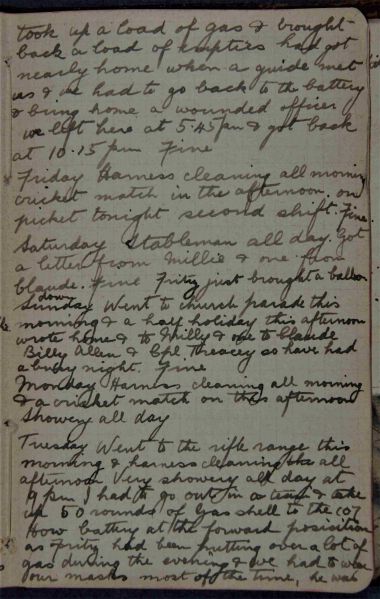 took up a load of gas & brought
back a load of empties had got
nearly home when a guide met
us & we had to go back to the battery
& bring home a wounded officer
we left here at 5.45 pm & got back
at 10.15 pm Fine
Friday Harness cleaning all morning
cricket match in the afternoon. on
picket tonight second shift. Fine
Saturday Stableman all day. Got
a letter from Millie & one from
Claude. Fine Fritz just brought a balloon
down
Sunday Went to church parade this
morning & a half holiday this afternoon
wrote home & to Milly & one to Claude
Billy Allen & Cpl Treacey so have had
a busy night. Fine
Monday Harness cleaning all morning
& a cricket match on this afternoon
Showery all day
Tuesday Went to the rifle range this
morning & harness cleaning all
afternoon Very showery all day at
9 pm I had to go out in a team & take
up 50 rounds of Gas shell to the
How battery at the forward position
as Fritz had been putting over a lot of
gas during the evening & we had to wear
our masks most of the time, he was